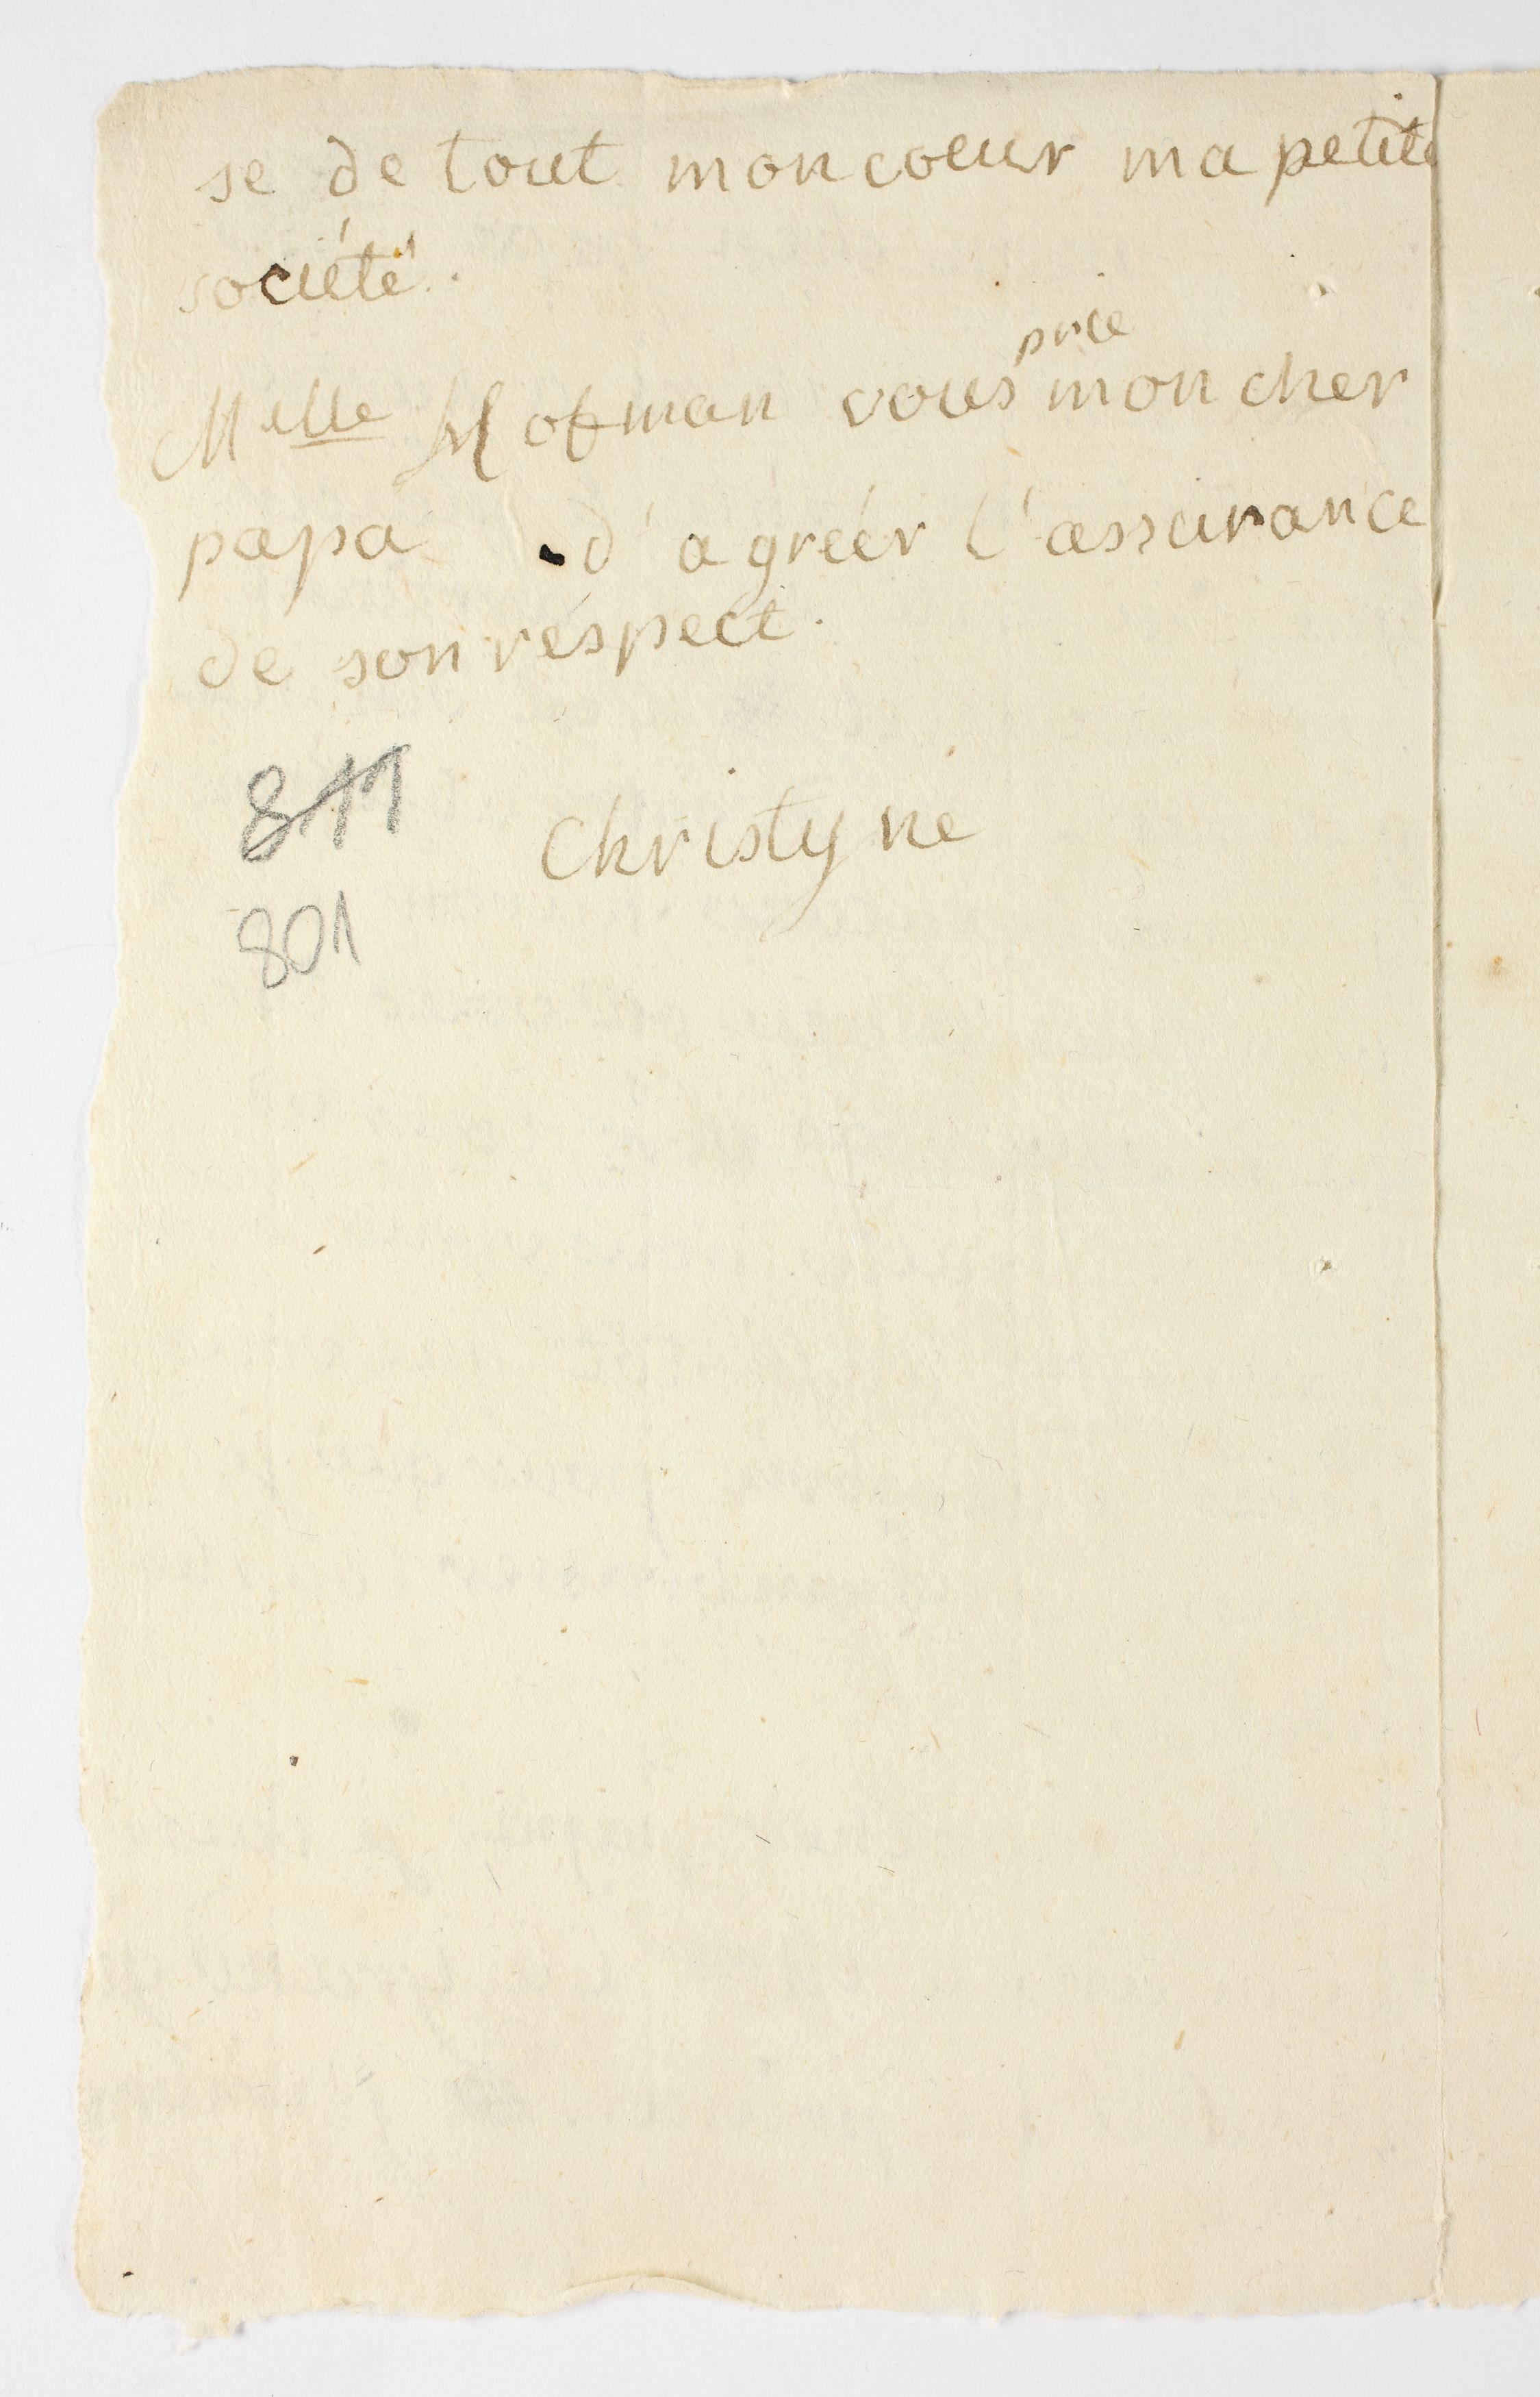 se de tout mon coeur ma petite
société.
prie
Melle Hofman vous mon cher
papa d'agréér l'assurance
de son réspect.
811
Christyne
801